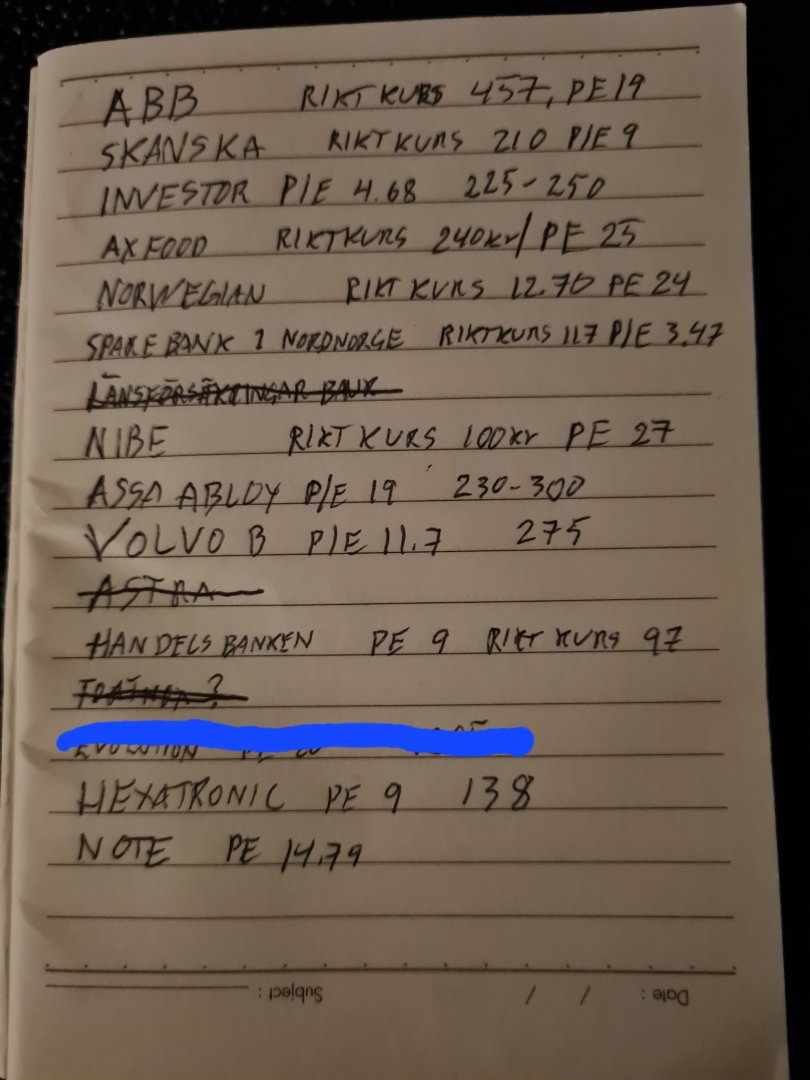 ABB RIKTKURS 457, PE 19
SKANSKA RIKTKURS 210 P/E 9
INVESTOR P/E 4.68 225-250
AXFOOD RIKTKURS 240kr/ PE 25
NORWEGIAN RIKTKURS 12.70 PE 24
SPAREBANK 1 NORDNORGE RIKTKURS 117 P/E 3.47
LÄNSFÖRSÄKRINGAR BANK
NIBE RIKTKURS 100kr PE 27
ASSA ABLOY P/E 19 230-300
VOLVO B P/E 11.7 275
ASTRA
HANDELSBANKEN PE 9 RIKTKURS 97
EVOLUTION PE
HEXATRONIC PE 9 138
NOTE PE 14,79
Subject :
Date : / /